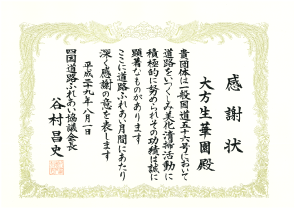 感謝状
大方生華園殿
貴団体は一般国道五十六号において
道路をいつくしみ美化清掃活動に
積極的に努められその功績は誠に
顕著なものがあります
ここに道路ふれあい月間にあたり
深く感謝の意を表します
平成二十九年八月一日
四国道路ふれあい協議会会長
谷村昌史